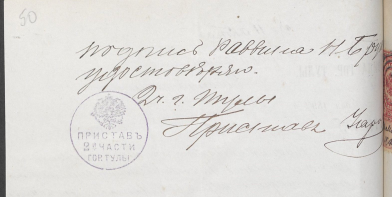 50
подпись Раввина Н. Бро
удостовѣряю.
2 ч. г. Тулы
Приставъ
ПРИСТАВЪ
2Й ЧАСТИ
ГОР. ТУЛЫ